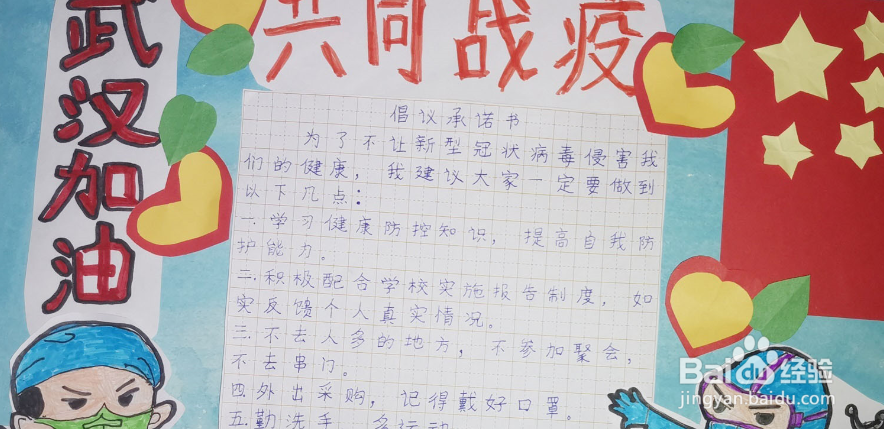 武汉加油
共同战疫
倡议承诺书
为了不让新型冠状病毒侵害我
们的健康，我建议大家一定要做到
以下几点：
一.学习健康防控知识，提高自我防
护能力。
二.积极配合学校实施报告制度，如
实反馈个人真实情况。
三.不去人多的地方，不参加聚会，
不去串门。
四.外出采购，记得戴好口罩。
五.勤洗手，多运动
Baidu经验
jingyan.baidu.com